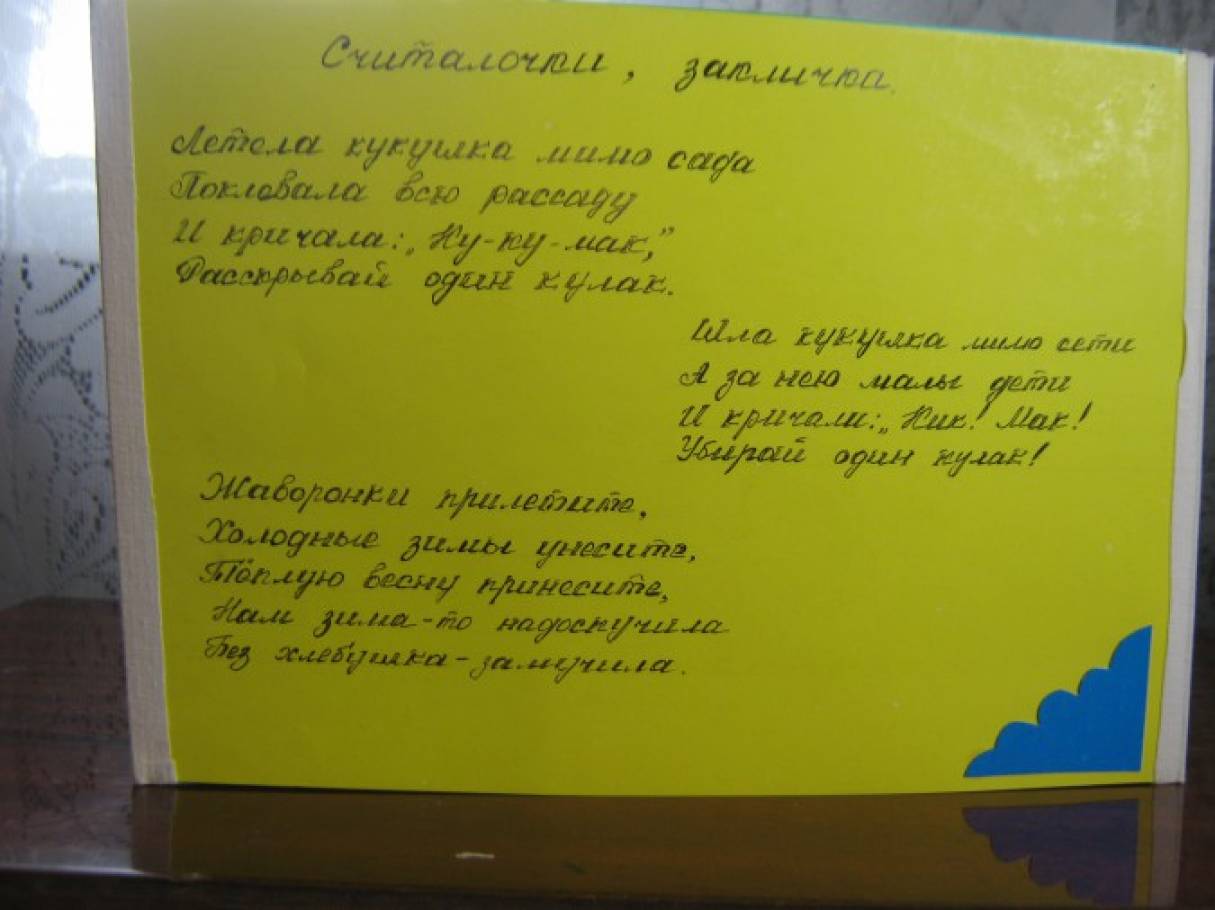 Считалочки, закличка.
Летела кукушка мимо сада
Поклевала всю рассаду
И кричала: „Ку-ку-мак,”
Расскрывай один кулак.
Шла кукушка мимо сети
А за нею малы дети
И кричали: „Кик! Мак!
Убирай один кулак!
Жаворонки прилетите,
Холодные зимы унесите,
Тёплую весну принесите,
Нам зима-то надоскучила
Без хлебушка-замучила.